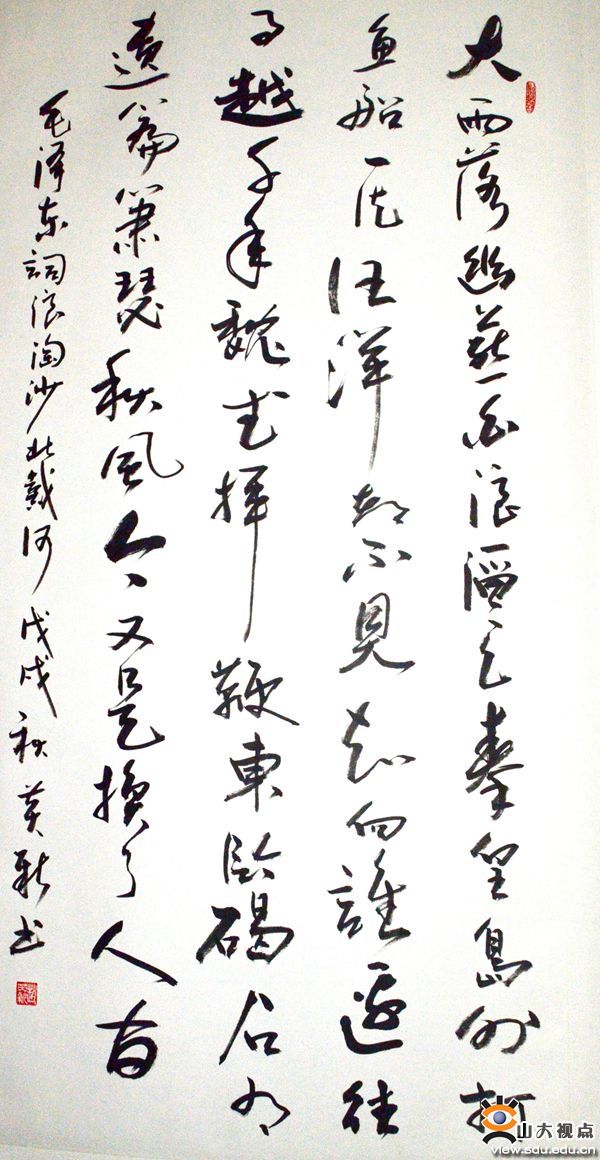 大雨落幽燕白浪滔天秦皇島外打
鱼船一片汪洋都不見知向誰邊往
事越千年魏武揮鞭東臨碣石有
遺篇蕭瑟秋風今又是換了人间
毛泽东詞浪淘沙北戴河 戊戌秋 书
山大视点
view.sdu.edu.cn